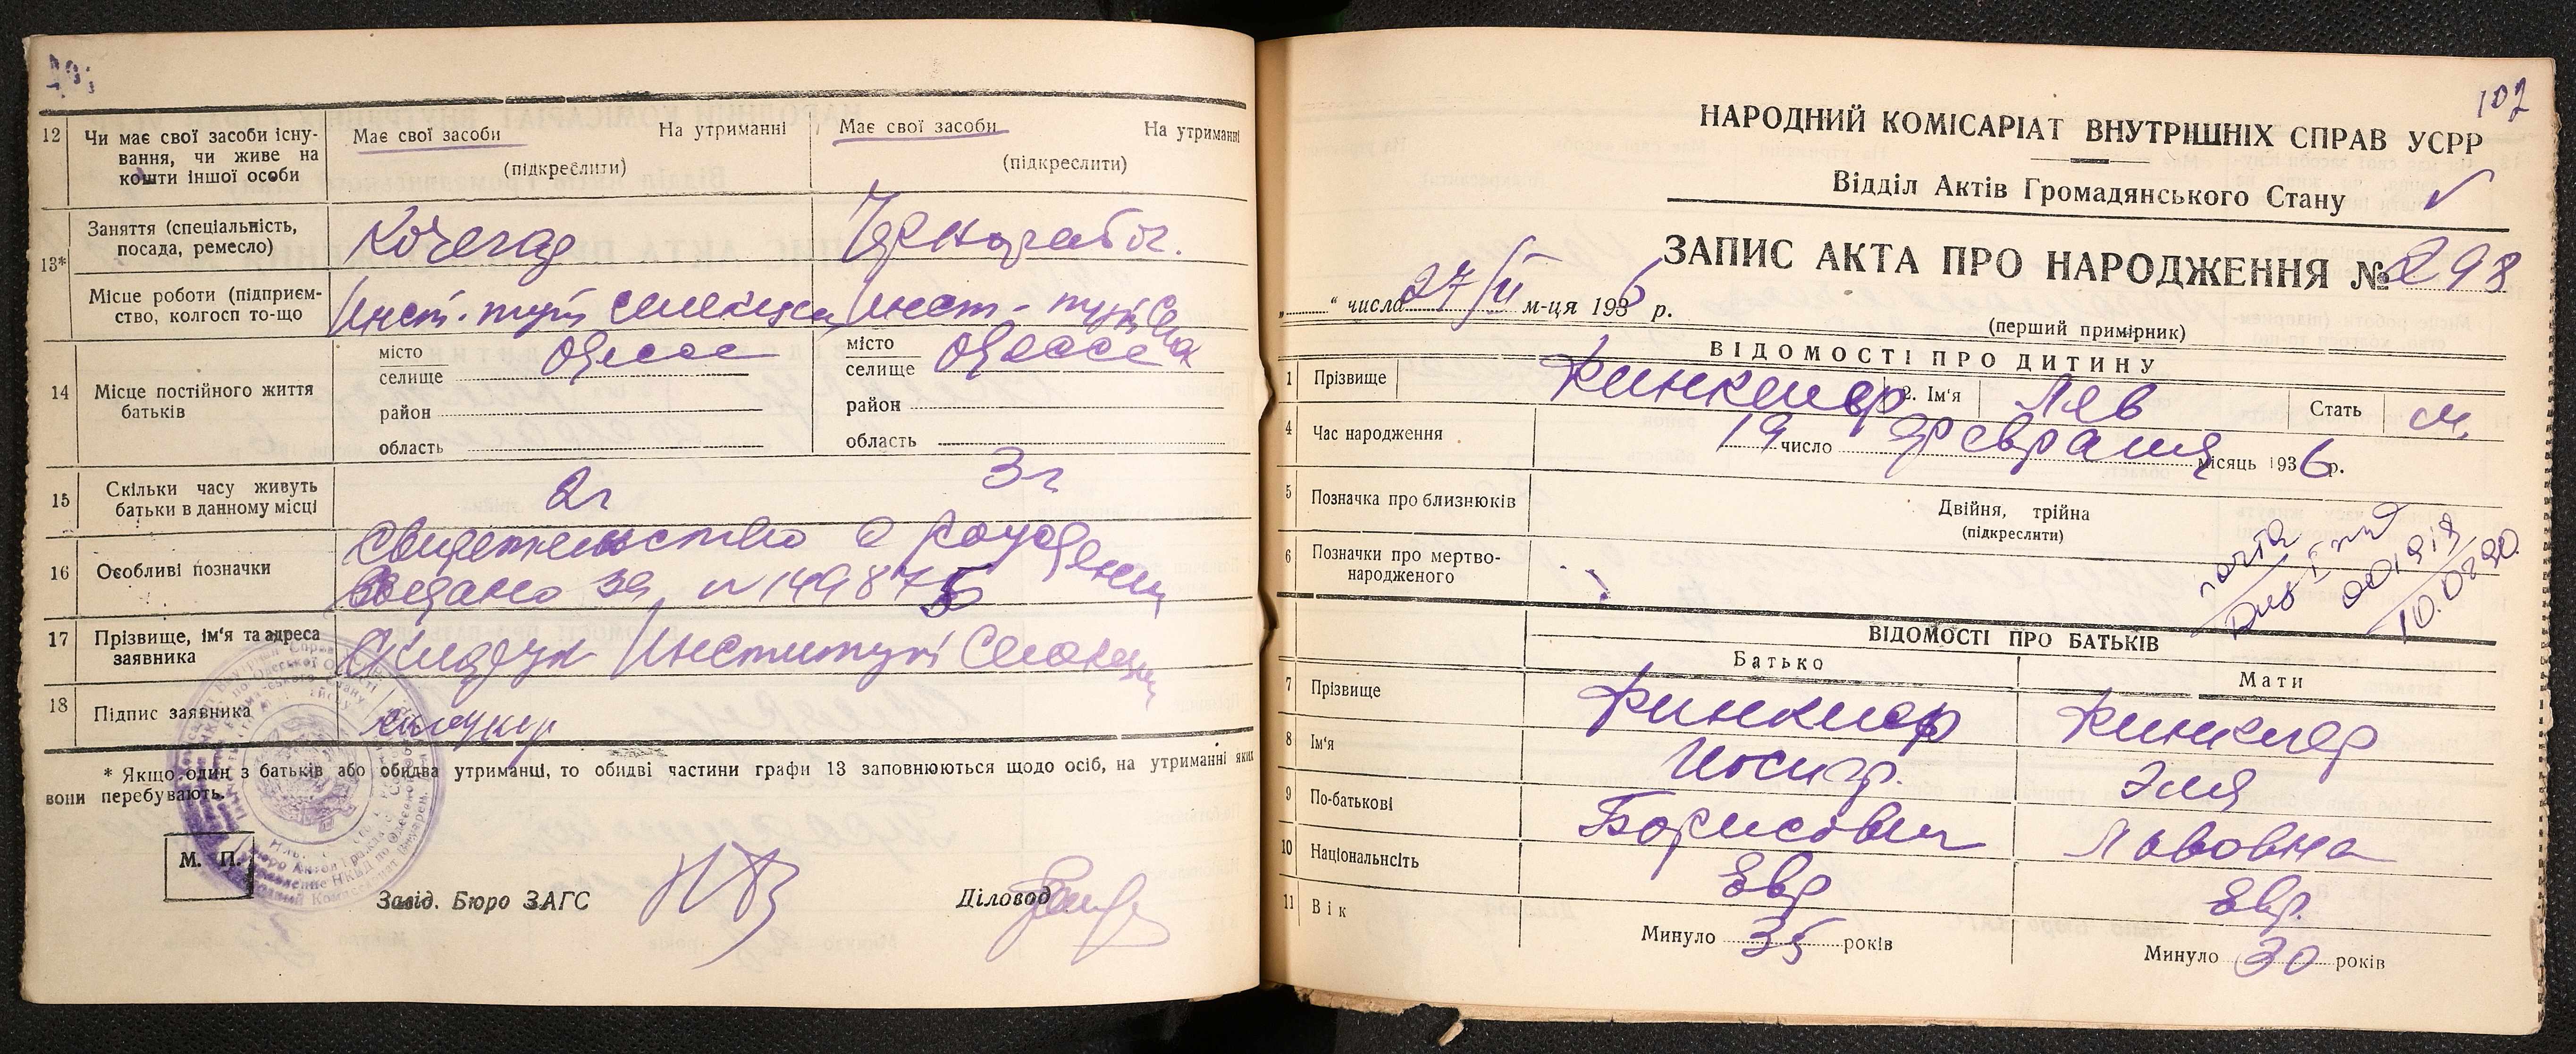 12 Чи має свої засоби існу-
вання, чи живе на
кошти іншої особи
Має свої засоби На утриманні
(підкреслити)
Має свої засоби На утриманні
(підкреслити)
13*
Заняття (спеціальність,
посада, ремесло)
Кочегар
Чернорабоч.
Місце роботи (підприєм-
ство, колгосп то-що
Инст-тут селекции
Инст-тут Селек
14 Місце постійного життя
батьків
місто Одесса
селище
район
область
місто Одесса
селище
район
область
15 Скільки часу живуть
батьки в данному місці
2г
3г
16 Особливі позначки
Свидетельство о рождении
выдано за N 149875
17 Прізвище, ім'я та адреса
заявника
Институт Селекции
18 Підпис заявника
* Якщо один з батьків або обидва утриманці, то обидві частини графи 13 заповнюються щодо осіб, на утриманні яких
вони перебувають.
М. П.
Завід. Бюро ЗАГС
Діловод
102
НАРОДНИЙ КОМІСАРІАТ ВНУТРІШНІХ СПРАВ УСРР
Відділ Актів Громадянського Стану
ЗАПИС АКТА ПРО НАРОДЖЕННЯ № 298
„ “ число 27/II м-ця 1936 р.
(перший примірник)
ВІДОМОСТІ ПРО ДИТИНУ
1 Прізвище Финклер 2. Ім'я Лев Стать м.
4 Час народження 19 число февраля місяць 1936 р.
5 Позначка про близнюків
Двійня, трійна
(підкреслити)
6 Позначки про мертво-
народженого
10.02.90
ВІДОМОСТІ ПРО БАТЬКІВ
Батько Мати
7 Прізвище Финклер Финклер
8 Ім'я Иосиф. Эля
9 По-батькові Борисович Львовна
10 Національнсіть Евр Евр.
11 Вік Минуло 35 років Минуло 30 років